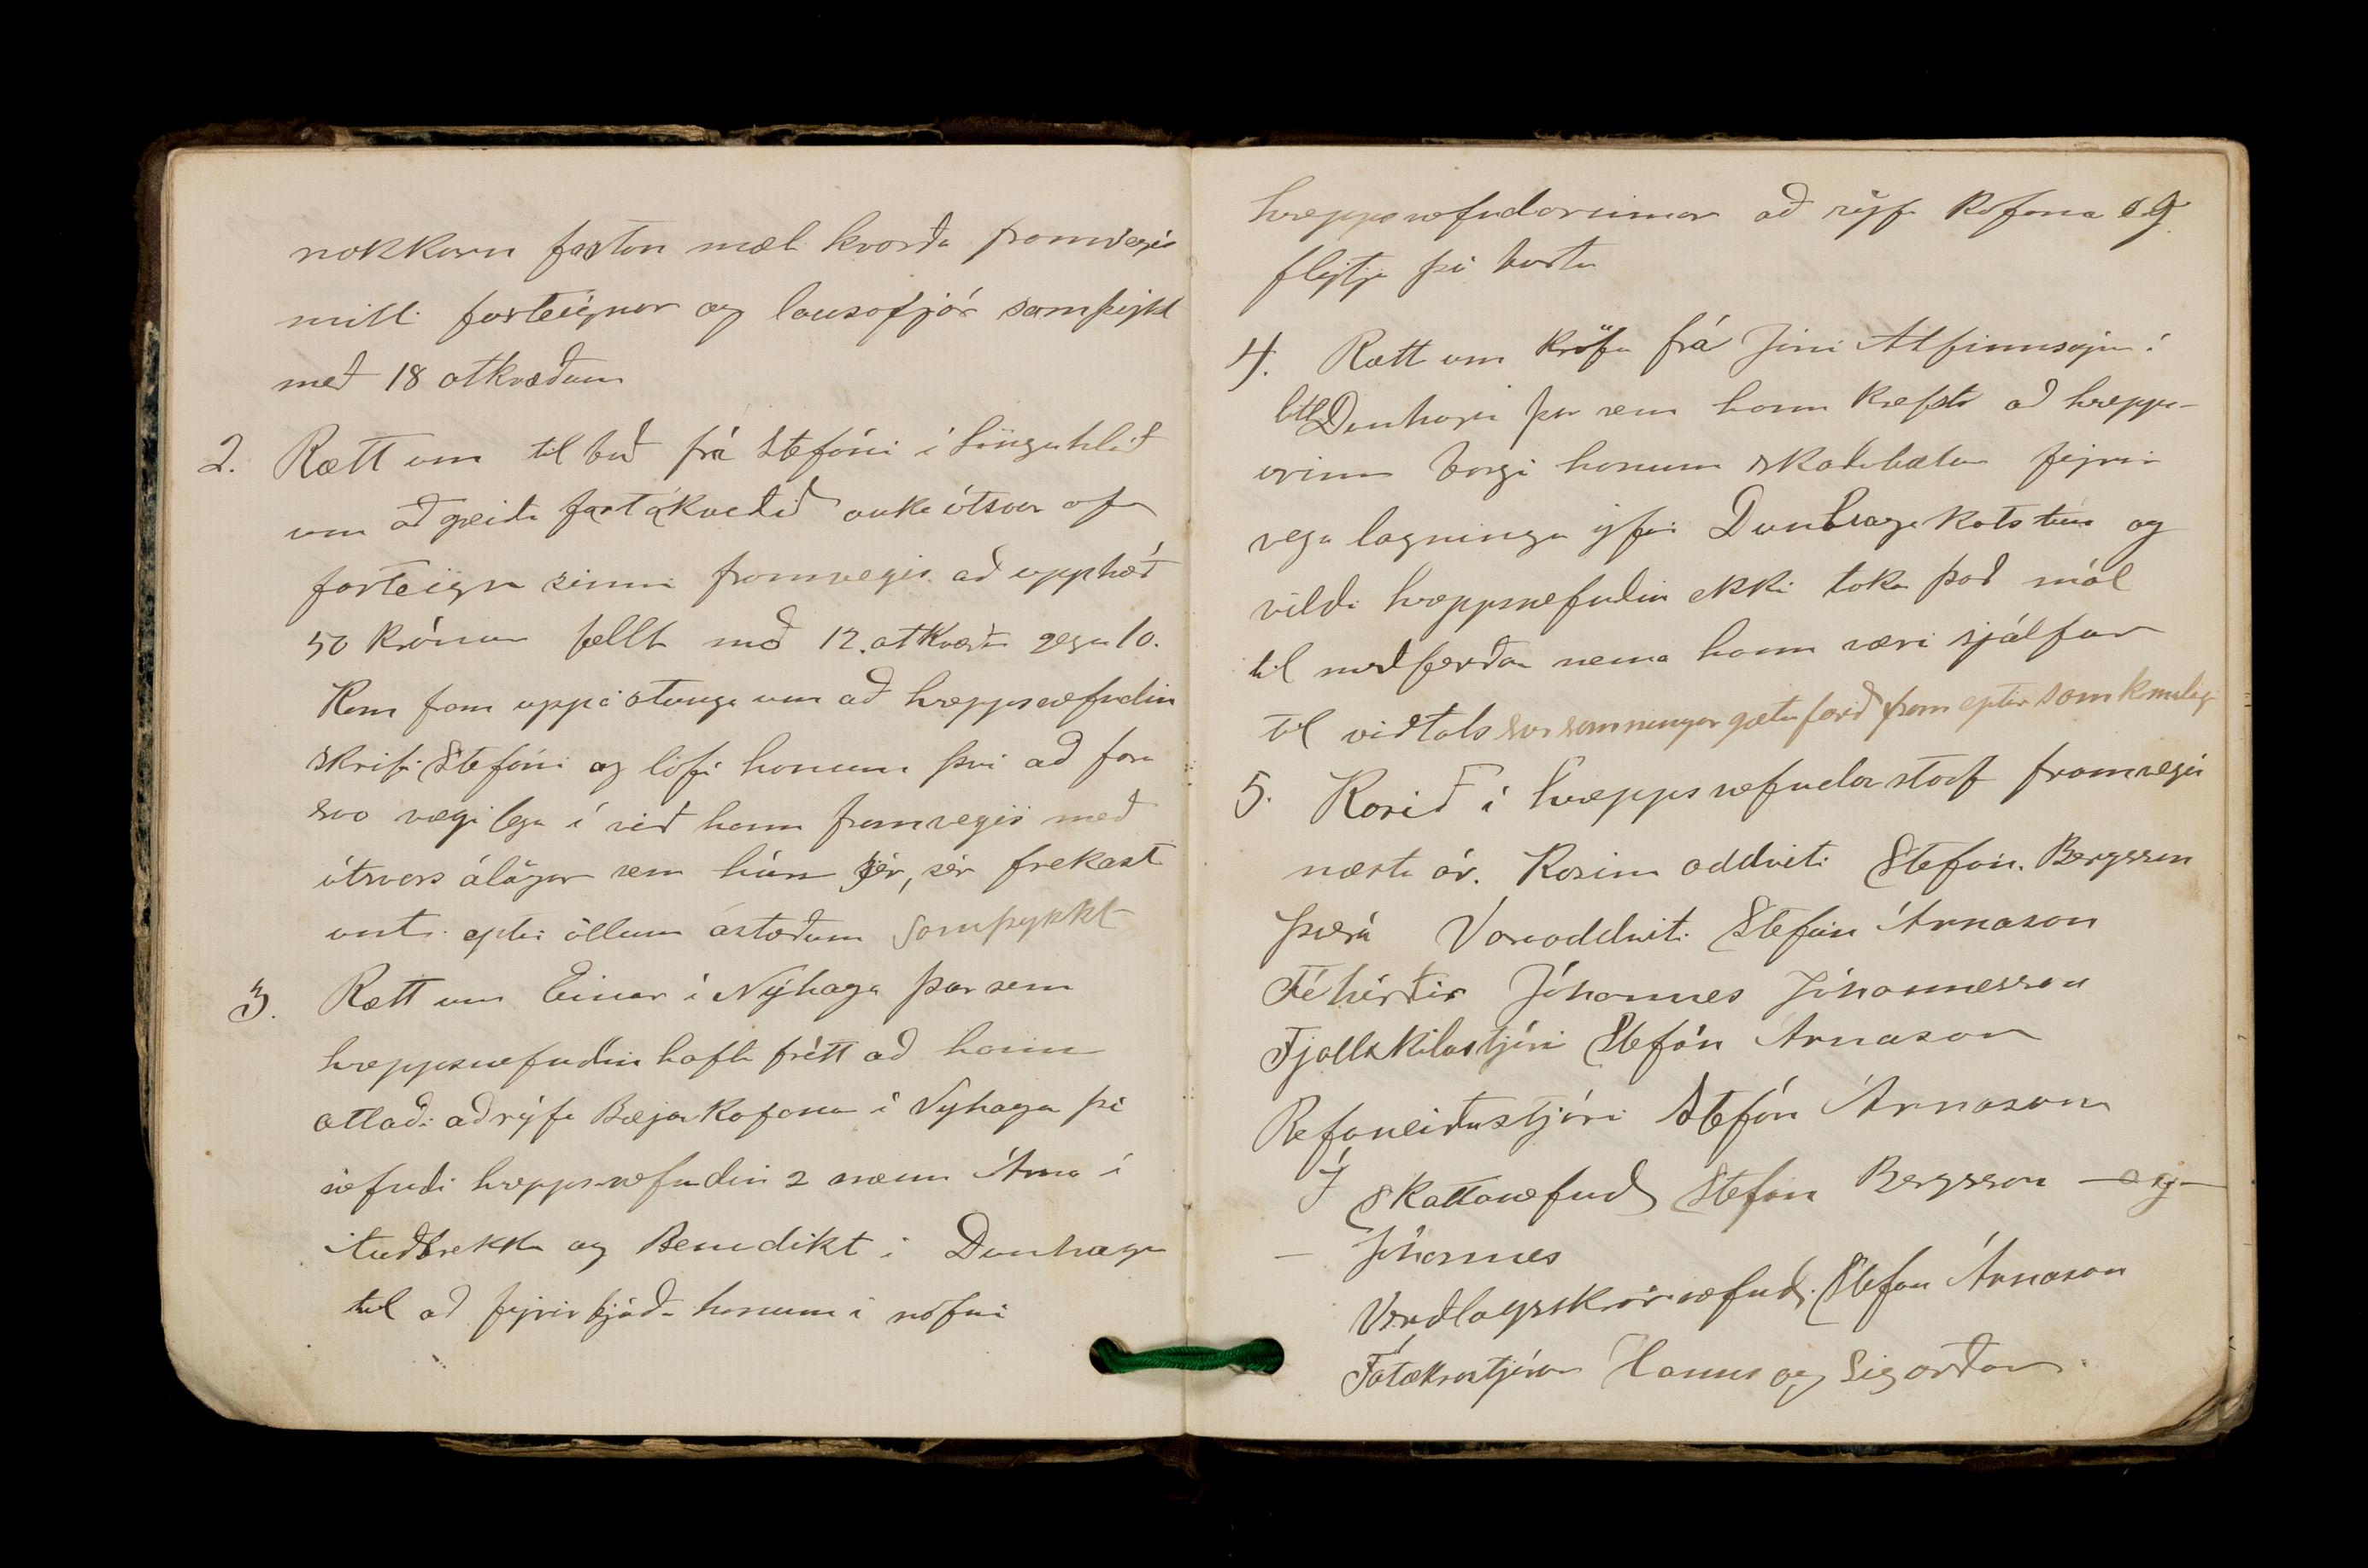 nokkorn fastan mæli kvarða framvegis
milli fasteignar og lausafjár samþikt
með 18 atkvæðum
2. Rætt um tilboð frá Stefáni i Lönguhlið
um að greiða fastákveðið auka útsvar af
fasteign sinni framvegis að upphæð
50 krónur fellt með 12. atkvæði gegn 10.
Kom fram uppá stunga um að hreppsnefndin
skrifi Stefáni og lofi honum þvi að fara
svo vægilega i við hann framvegis með
útsvars álögur sem hún sér, sér frekast
unt eptir öllum ástæðum samþykkt
3. Rætt um Einar i Nýhaga þar sem
hreppsnefndin hafði frétt að hann
ætlaði að rýfa Bæjar kofana i Nýhaga þá
nefndi hreppsnefndin 2 menn Árna i
Auðbrekku og Benidikt i Dunhaga
til að fyrir bjóða honum i nafni
hreppsnefndarinnar að rýfa kofana og
flytja þá burtu
4. Rætt um kröfu frá Jóni Alfinnssyni i
litlDunhaga þar sem hann krefst að hreppu-
urinn borgi honum skaðabætur fyrir
vega lagningu yfir Dunhagakots tún og
vildi hreppsnefndin ekki taka það mál
til meðferðar nema hann væri sjálfur
til viðtals svo samningar gætu farið fram eptir samkomulagi
5. Kosið i hreppsnefndar störf framvegis
næsta ár. Kosinn oddviti Stefán. Bergsson
Þverá Varaoddviti Stefán Árnason
Féhirðir Jóhannes Jóhannesson
Fjallskilastjóri Stefán Árnason
Refaveiðustjóri Stefán Árnason
Í skattanefnd Stefán Bergsson og
Jóhannes
Verðlagsskrárnefnd Stefán Árnason
Fátækrastjórar Hannes og Sigurður.